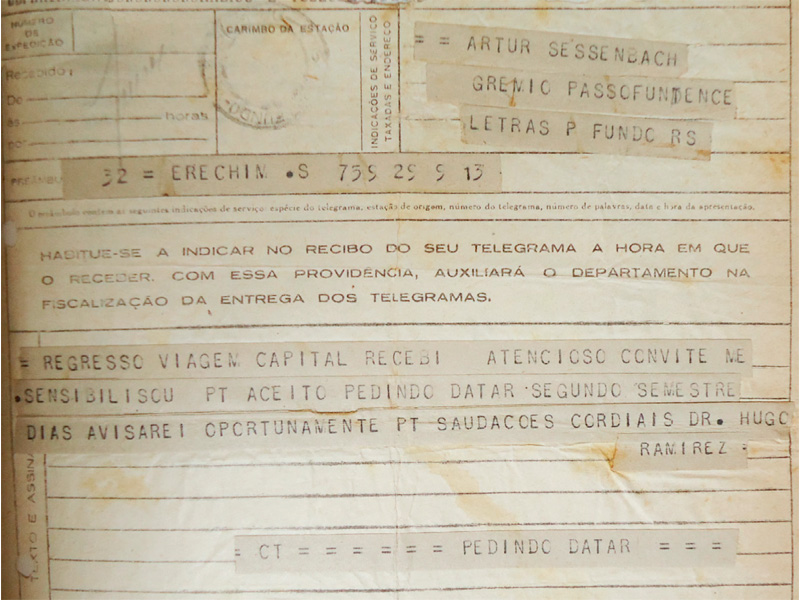 NÚMERO
DE
EXPEDIÇÃO
CARIMBO DA ESTAÇÃO
INDICAÇÕES DE SERVIÇO
TAXADAS E ENDEREÇO
= = ARTUR SESSENBACH
GREMIO PASSOFUNDENCE
LETRAS P FUNDO RS
Recebido:
De
às horas
por
PREÂMBU
32 = ERECHIM .S 759 29 9 13
O preâmbulo contem as seguintes indicações de serviço: espécie do telegrama, estação de origem, número do telegrama, número de palavras, data e hora da apresentação.
HABITUE-SE A INDICAR NO RECIBO DO SEU TELEGRAMA A HORA EM QUE
O RECEBER. COM ESSA PROVIDÊNCIA, AUXILIARÁ O DEPARTAMENTO NA
FISCALIZAÇÃO DA ENTREGA DOS TELEGRAMAS.
= REGRESSO VIAGEM CAPITAL RECEBI ATENCIOSO CONVITE ME
.SENSIBILISOU PT ACEITO PEDINDO DATAR SEGUNDO SEMESTRE
DIAS AVISAREI OPORTUNAMENTE PT SAUDACOES CORDIAIS DR. HUGO
RAMIREZ =
TEXTO E ASSINA
= CT = = = = = = PEDINDO DATAR = = =